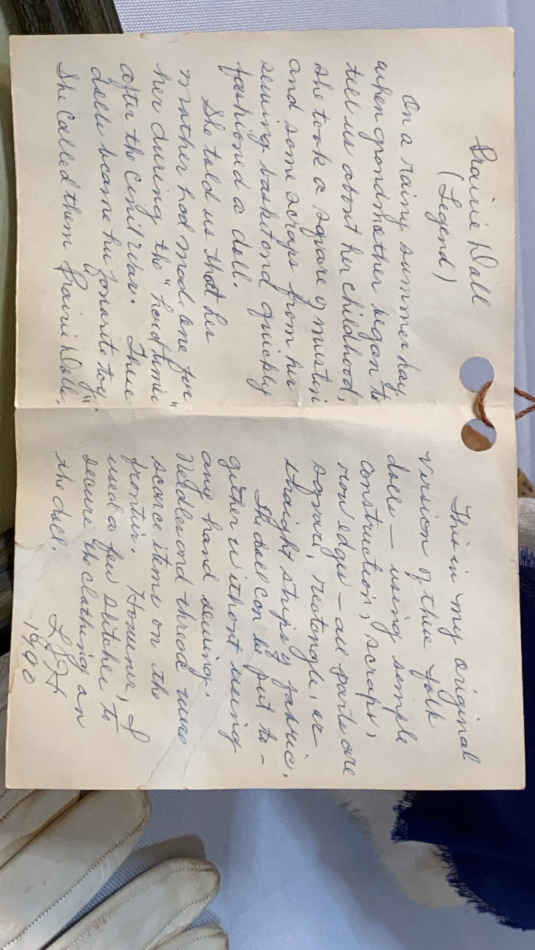 Prairie Doll
(Legend)
On a rainy summer day,
when grandmother began to
tell us about her childhood,
she took a square of muslin
and some scraps from her
sewing basket and quickly
fashioned a doll.
She told us that her
mother had made one for
her during the "hard times"
after the Civil War. These
dolls became her favorite toy.
She called them "Prairie Dolls."
This is my original
version of this folk
doll — using simple
construction, scraps,
raw edges — all parts are
square, rectangle, or
straight strips of fabric.
The doll can be put to-
gether without using
any hand sewing.
Needles and thread were
scarce items on the
frontier. However, I
used a few stitches to
secure the clothing on
the doll.
1990